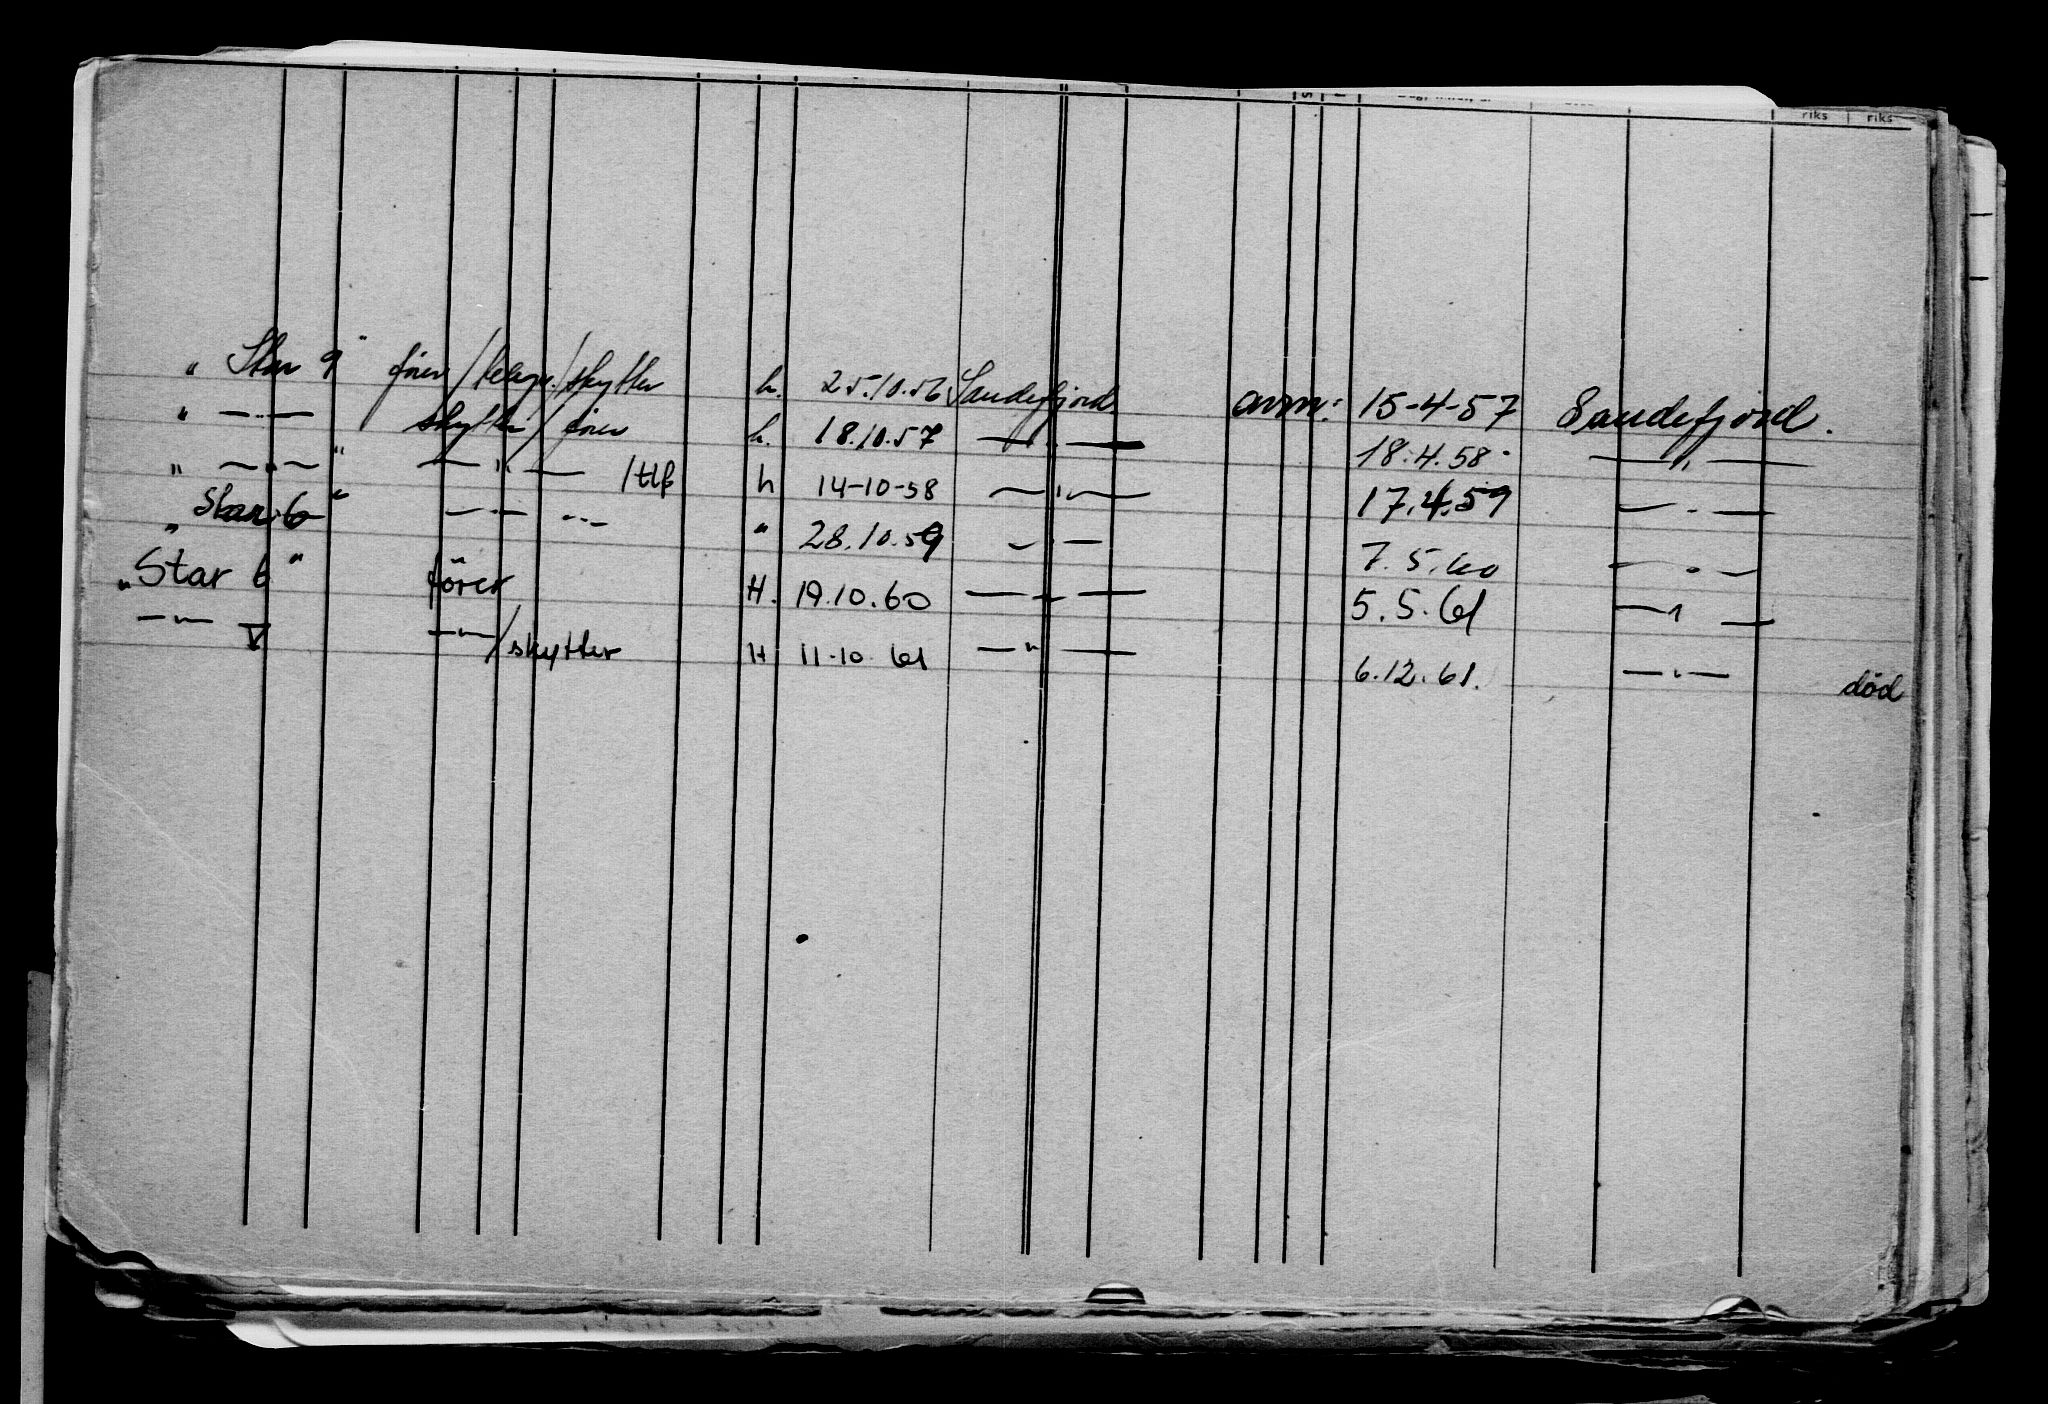 riks riks
„ Star 9 " fører/telegr./skytter h. 25.10.56 Sandefjord avm: 15-4-57 Sandefjord.
" —..— skytter/fører h. 18.10.57 — . — 18.4.58 — „ —
" — „ — " — „ — /tlf h 14-10-58 — „ — 17.4.59 — . —
„ Star 6 " — .. — ... " 28.10.59 — . — 7.5.60 — . —
„ Star 6 " förer H. 19.10.60 — „ — 5.5.61 — „ —
— „ — V — „ — /skytter H 11.10.61 — „ — 6.12.61. — „ — død